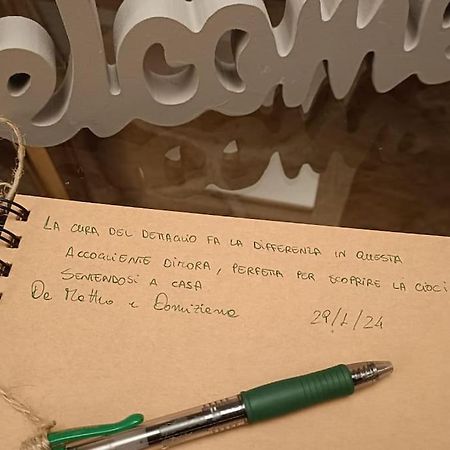 Welcome
LA CURA DEL DETTAGLIO FA LA DIFFERENZA IN QUESTA
ACCOGLIENTE DIMORA, PERFETTA PER SCOPRIRE LA CIOCI
SENTENDOSI A CASA
De Matteo e Domiziana
29/1/24